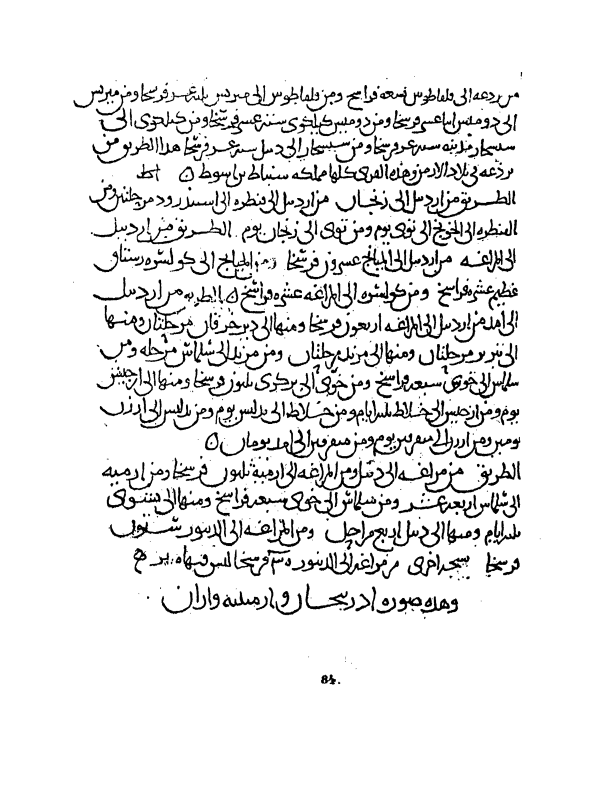 من بردعه الى قلقاطوس تسعه فراسخ ومن قلقاطوس الى مبريس ثلثه عشر فرسخا ومن مبريس
الى دوميس اثنا عشر فرسخا ومن دوميس كيلكوى ستة عشر فرسخا ومن كيلكوى الى
سيسجان مدينه ستة عشر فرسخا ومن سيسجان الى دبيل ستة عشر فرسخا هذا الطريق من
بردعه فى بلاد الارمن وهذه القرى كلها مملكه سنباط بن اسوط
الطريق من اردبيل الى زنجان من اردبيل الى قنطره الى اسبندرود مرحلتين ومن
القنطره الى الخونج الى توى يوم ومن توى الى زنجان يوم الطريق من اردبيل
الى المراغه من اردبيل الى الميانج عشرون فرسخا ومن الميانج الى كولسره رستاق
عظيم عشره فراسخ ومن كولسره الى المراغه عشره فراسخ الطريق من اردبيل
الى آمد من اردبيل الى المراغه اربعون فرسخا ومنها الى ديرخرقان مرحلتان ومنها
الى تبريز مرحلتان ومنها الى مرند مرحلتان ومن مرند الى سلماس مرحله ومن
سلماس الى خوى سبعه فراسخ ومن خوى الى بركرى ثلثون فرسخا ومنها الى ارجيش
يوم ومن ارجيش الى خلاط ثلثه ايام ومن خلاط الى بدليس يوم ومن بدليس الى ارزن
يومين ومن ارزن الى ميافرقين يوم ومن ميافرقين الى آمد يومان
الطريق من مراغه الى دبيل ومن المراغه الى ارميه ثلثون فرسخا ومن ارميه
الى سلماس اربعه عشر ومن سلماس الى خوى سبعه فراسخ ومنها الى نشوى
ثلثه ايام ومنها الى دبيل اربع مراحل ومن المراغه الى الدينور ستون
فرسخا من مراغه الى الدينور فرسخا ليس فيها
وهذه صوره اذربيجان وارمينيه واران
84.